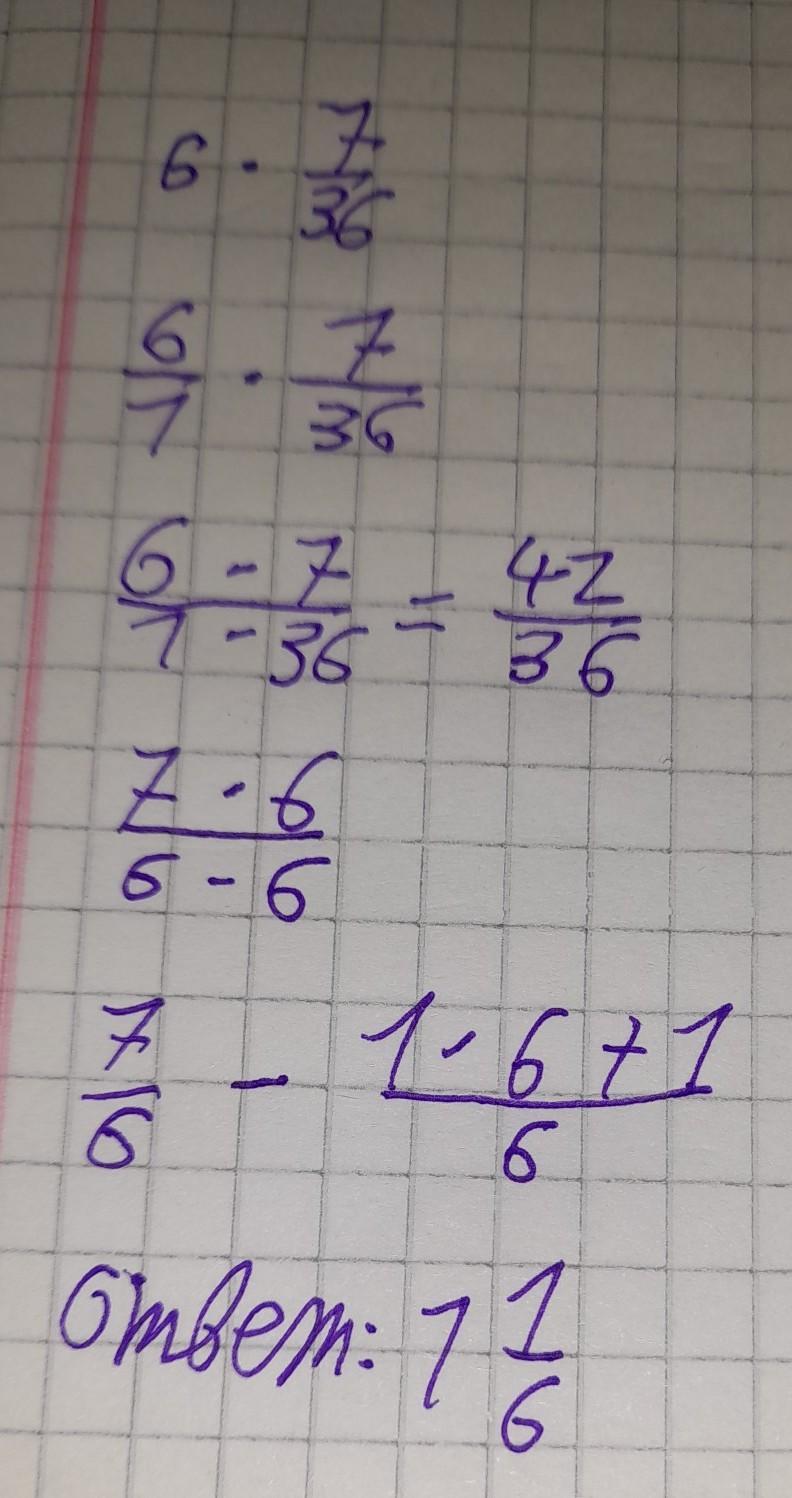 6 · 7/36
6/1 · 7/36
6 - 7/1 - 36 = 42/36
7 · 6/6 - 6
7/6 - 1 · 6 + 1/6
Ответ: 1 1/6